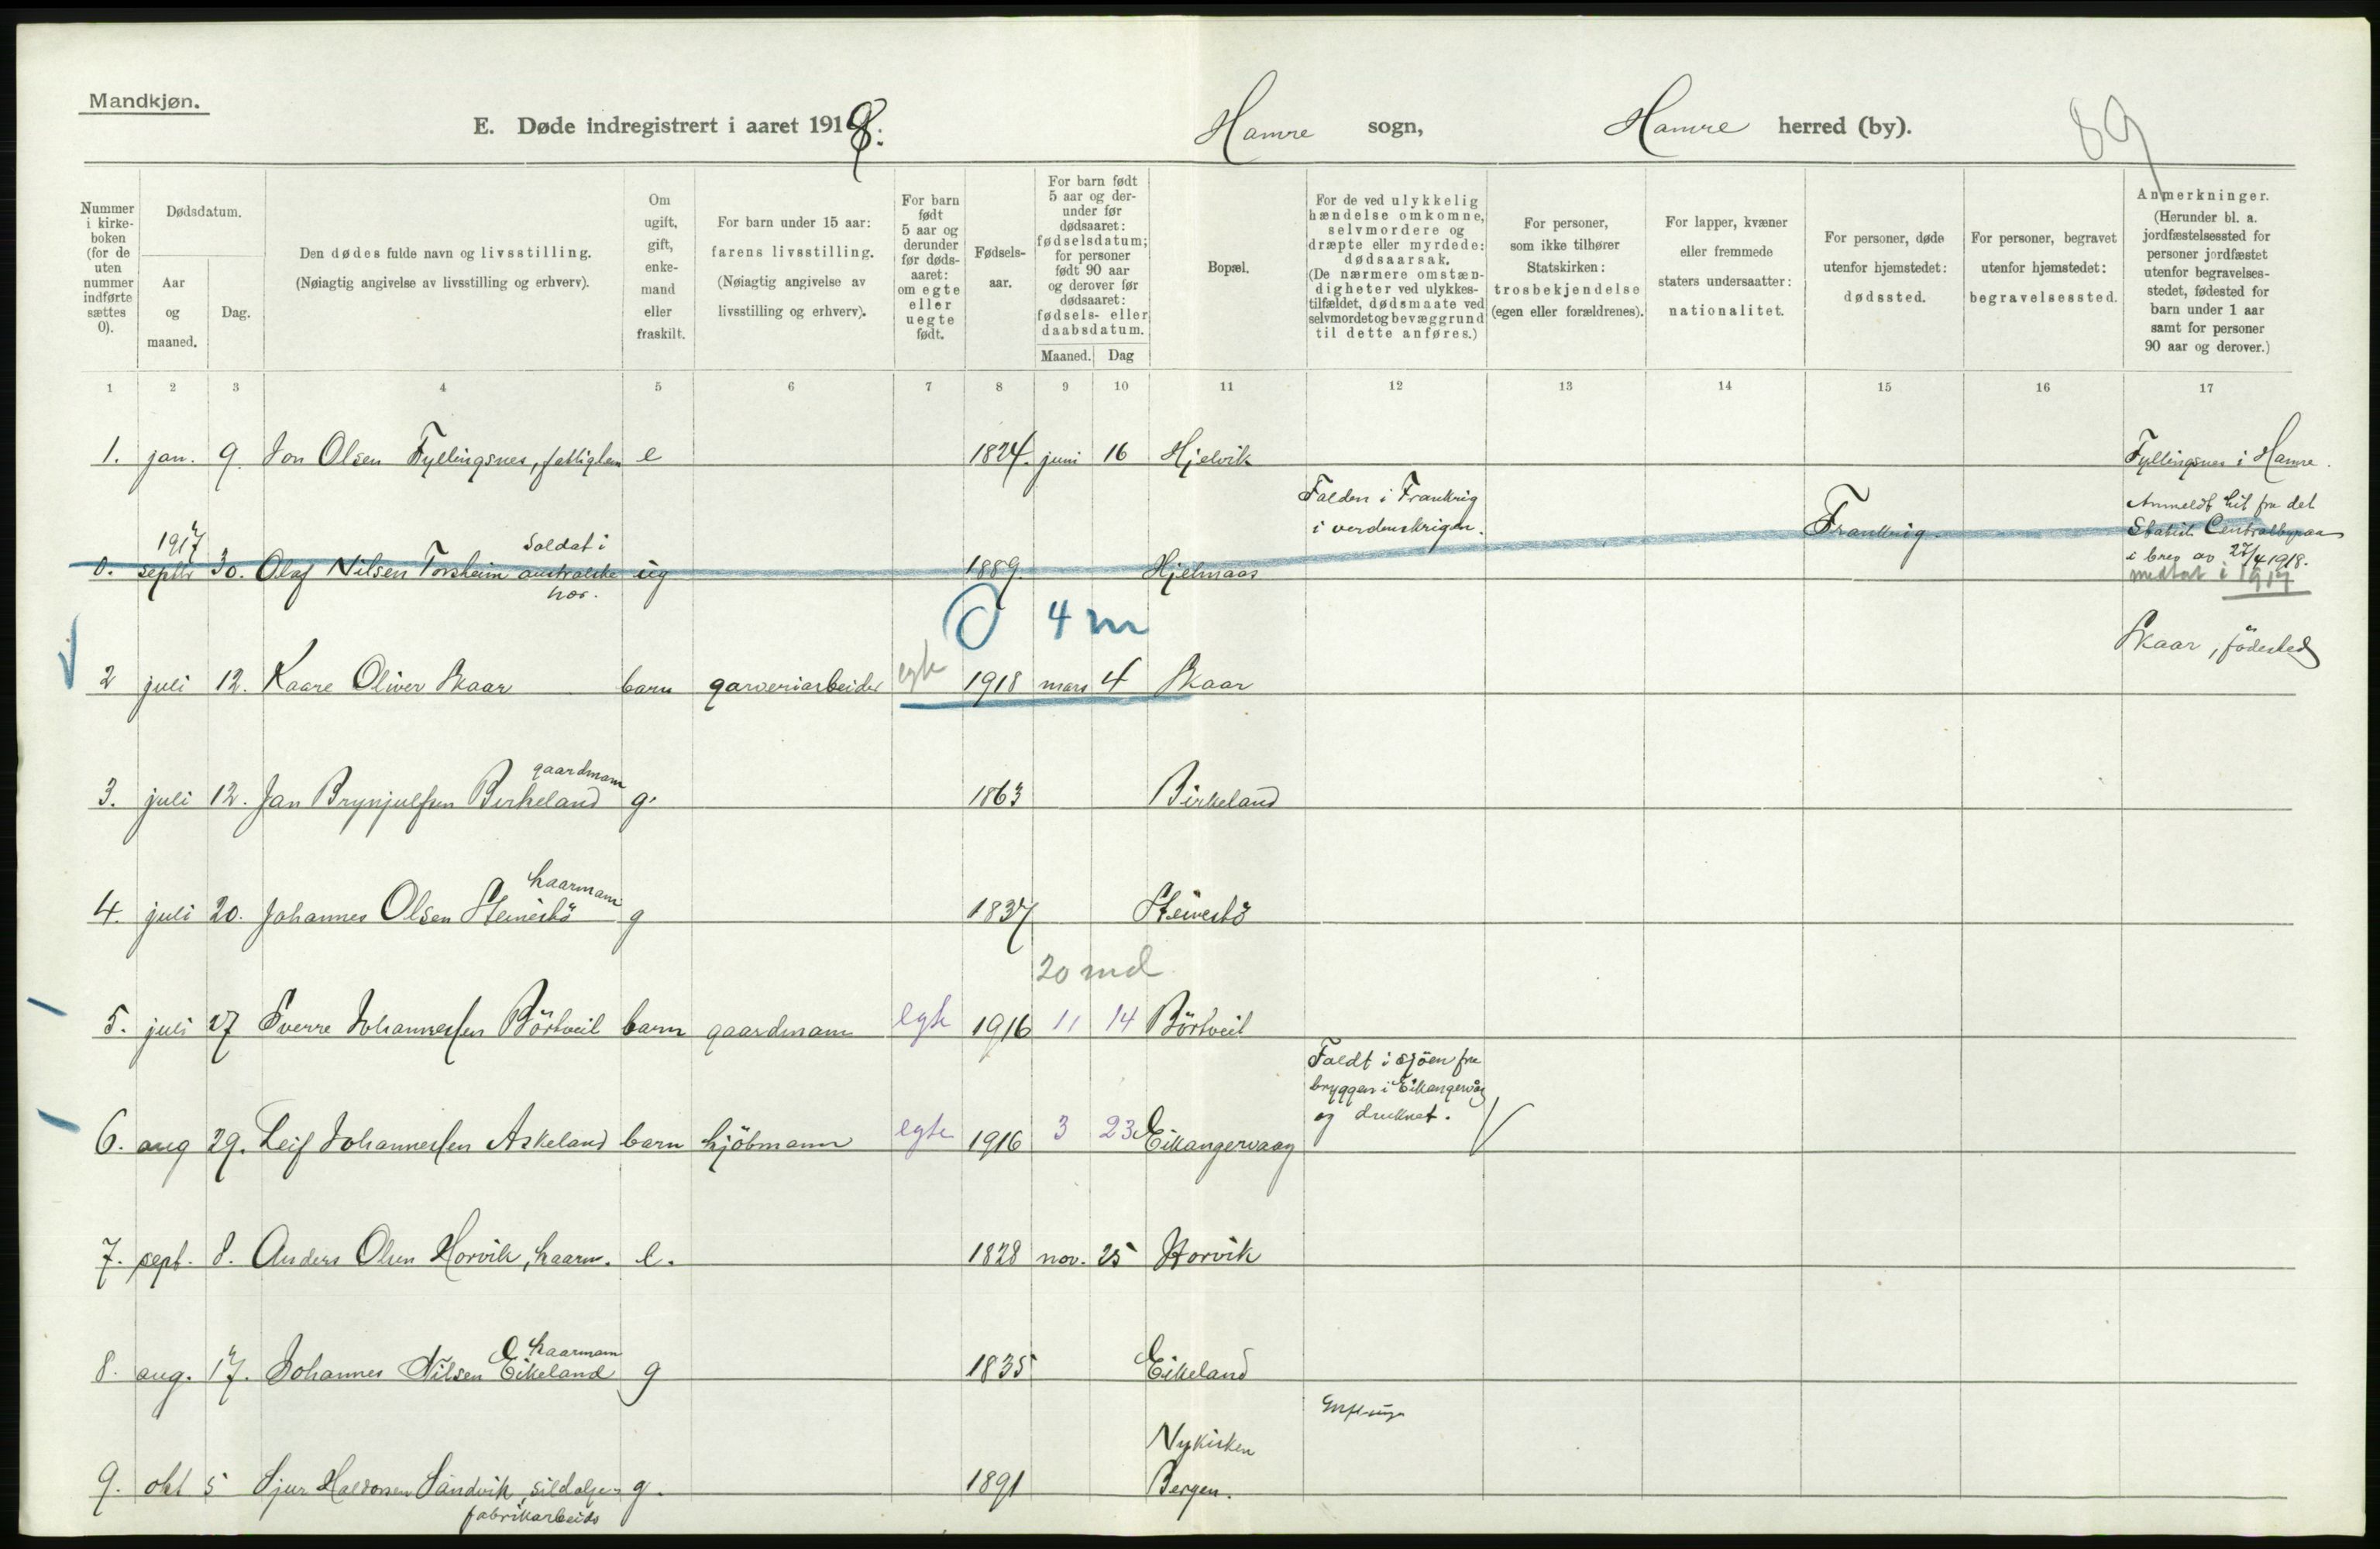 Mandkjøn.
E. Døde indregistrert i aaret 1918. Hamre sogn, Hamre herred (by). 89
Nummer i kirke-boken (for de uten nummer indførte sættes 0).
Dødsdatum.
Aar og maaned.
Dag.
Den dødes fulde navn og livsstilling. (Nøiagtig angivelse av livsstilling og erhverv).
Om ugift, gift, enke-mand eller fraskilt.
For barn under 15 aar: farens livsstilling. (Nøiagtig angivelse av livsstilling og erhverv).
For barn født 5 aar og derunder før døds-aaret: om egte eller uegte født.
Fødsels-aar.
For barn født 5 aar og der-under før dødsaaret: fødselsdatum; for personer født 90 aar og derover før dødsaaret: fødsels- eller daabsdatum.
Maaned. Dag
Bopæl.
For de ved ulykkelig hændelse omkomne, selvmordere og dræpte eller myrdede: dødsaarsak. (De nærmere omstæn-digheter ved ulykkes-tilfældet, dødsmaate ved selvmordet og bevæggrund til dette anføres.)
For personer, som ikke tilhører Statskirken: trosbekjendelse (egen eller forældrenes).
For lapper, kvæner eller fremmede staters undersaatter: nationalitet.
For personer, døde utenfor hjemstedet: dødssted.
For personer, begravet utenfor hjemstedet: begravelsessted.
Anmerkninger. (Herunder bl. a. jordfæstelsessted for personer jordfæstet utenfor begravelses-stedet, fødested for barn under 1 aar samt for personer 90 aar og derover.)
1 2 3 4 5 6 7 8 9 10 11 12 13 14 15 16 17
1. jan. 9. Jon Olsen Fyllingsnes, fattiglem e 1824. juni 16 Hjelvik Fyllingsnes i Hamre.
0. 1917 septbr 30. Olaf Nilsen Torsheim soldat i australske hær. ug 1889. Hjelmaas Falden i Frankrig i verdenskrigen. Frankrig. Anmeldt hit fra det Statist. Centralbyraa i brev av 27/4 1918. medtat i 1917
0 4 m
2 juli 12. Kaare Oliver Skaar barn garveriarbeider egte 1918 mars 4 Skaar Skaar, födested
3. juli 12. Jan Brynjulfsen Birkeland gaardmann g. 1863 Birkeland
4. juli 20. Johannes Olsen Steinestö kaarmann g 1837 Steinestö
20 md
5. juli 27 Sverre Johannessen Börtveit barn gaardmann egte 1916 11 14 Börtveit
6. aug 29. Leif Johannessen Askeland barn kjöbmann egte 1916 3 23 Eikangervaag Faldt i sjöen fra bryggen i Eikangervåg og druknet.
7. sept. 8. Anders Olsen Horvik, kaarm. e. 1828 nov. 25 Horvik
8. aug. 17. Johannes Nilsen Eikeland kaarmann g 1835 Eikeland
9. okt 5 Sjur Haldorsen Sandvik, sildolje- fabrikarbeider g. 1891 Nykirken Bergen.